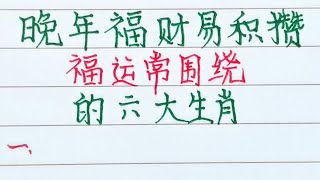 晚年福财易积攒
福运常围绕
的六大生肖
一、